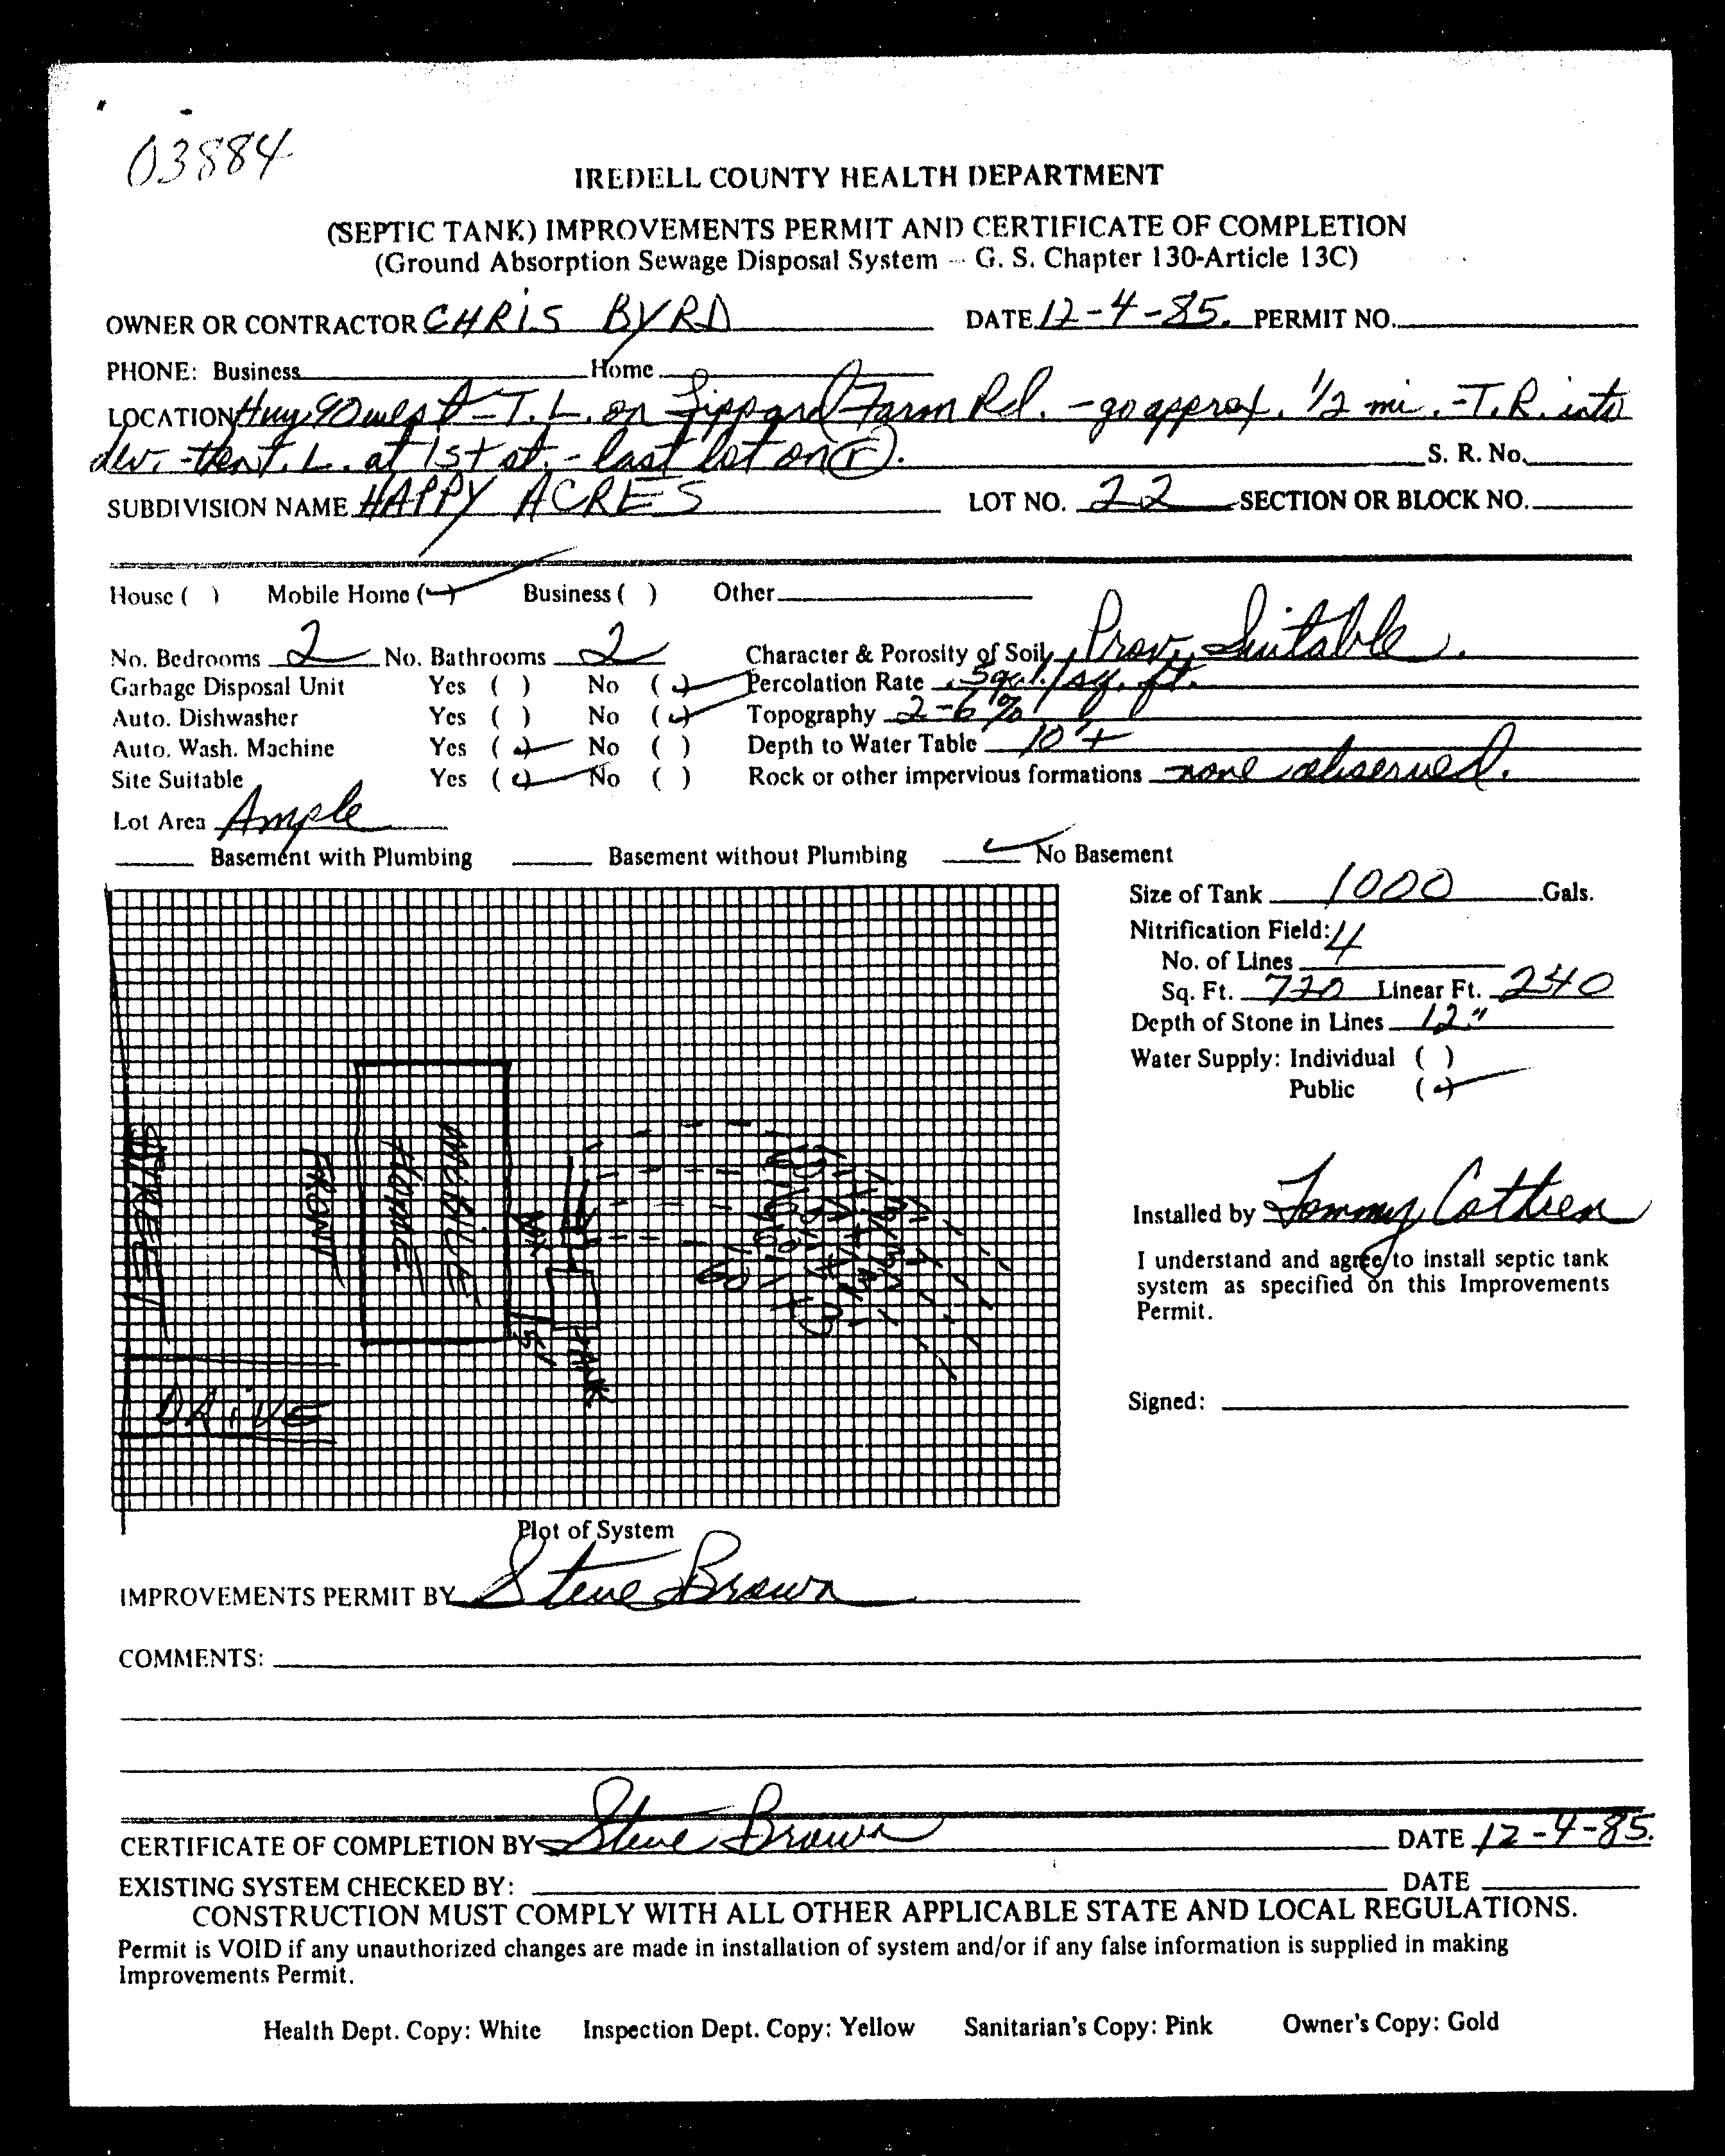 03884
IREDELL COUNTY HEALTH DEPARTMENT
(SEPTIC TANK) IMPROVEMENTS PERMIT AND CERTIFICATE OF COMPLETION
(Ground Absorption Sewage Disposal System – G. S. Chapter 130-Article 13C)
OWNER OR CONTRACTOR CHRIS BYRD DATE 12-4-85. PERMIT NO.
PHONE: Business Home
LOCATION Hwy 90 west - T. L. on Lippard Farm Rd. - go approx. 1/2 mi. - T. R. into
dev. - then T. L. at 1st st. - last lot on (r). S. R. No.
SUBDIVISION NAME HAPPY ACRES LOT NO. 22 SECTION OR BLOCK NO.
House ( ) Mobile Home (✓) Business ( ) Other
No. Bedrooms 2 No. Bathrooms 2 Character & Porosity of Soil Prov. Suitable.
Garbage Disposal Unit Yes ( ) No (✓) Percolation Rate .5gal./sq. ft.
Auto. Dishwasher Yes ( ) No (✓) Topography 2-6%
Auto. Wash. Machine Yes (✓) No ( ) Depth to Water Table 10'+
Site Suitable Yes (✓) No ( ) Rock or other impervious formations none observed.
Lot Area Ample
Basement with Plumbing Basement without Plumbing ✓ No Basement
Size of Tank 1000 Gals.
Nitrification Field:
No. of Lines 4
Sq. Ft. 720 Linear Ft. 240
Depth of Stone in Lines 12"
Water Supply: Individual ( )
Public (✓)
STREET
FRONT
MOBILE
HOME
15'
TANK
DRIVE
Installed by Tommy Cothren
I understand and agree to install septic tank
system as specified on this Improvements
Permit.
Signed:
Plot of System
IMPROVEMENTS PERMIT BY Steve Brown
COMMENTS:
CERTIFICATE OF COMPLETION BY Steve Brown DATE 12-4-85.
EXISTING SYSTEM CHECKED BY: DATE
CONSTRUCTION MUST COMPLY WITH ALL OTHER APPLICABLE STATE AND LOCAL REGULATIONS.
Permit is VOID if any unauthorized changes are made in installation of system and/or if any false information is supplied in making
Improvements Permit.
Health Dept. Copy: White Inspection Dept. Copy: Yellow Sanitarian's Copy: Pink Owner's Copy: Gold